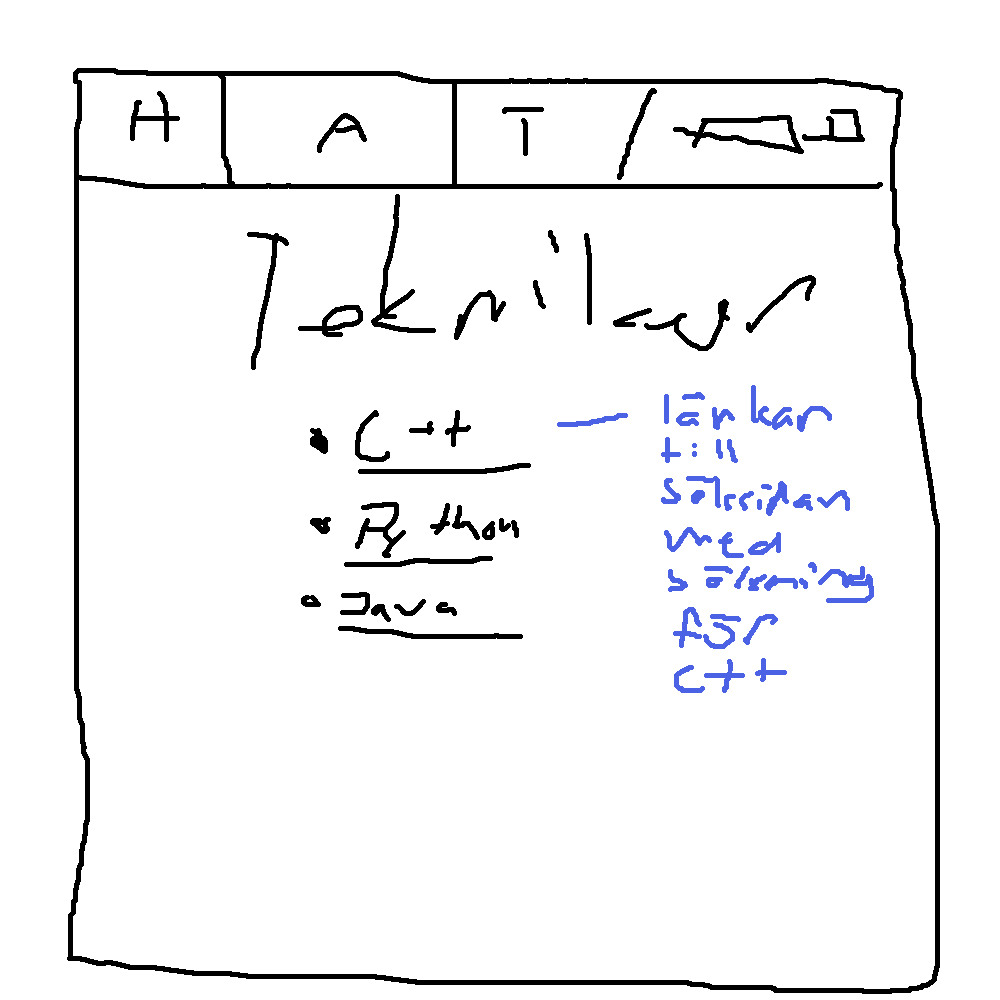 H A T
Tekniker
C++
Python
Java
länkar
till
söksidan
med
sökning
för
C++